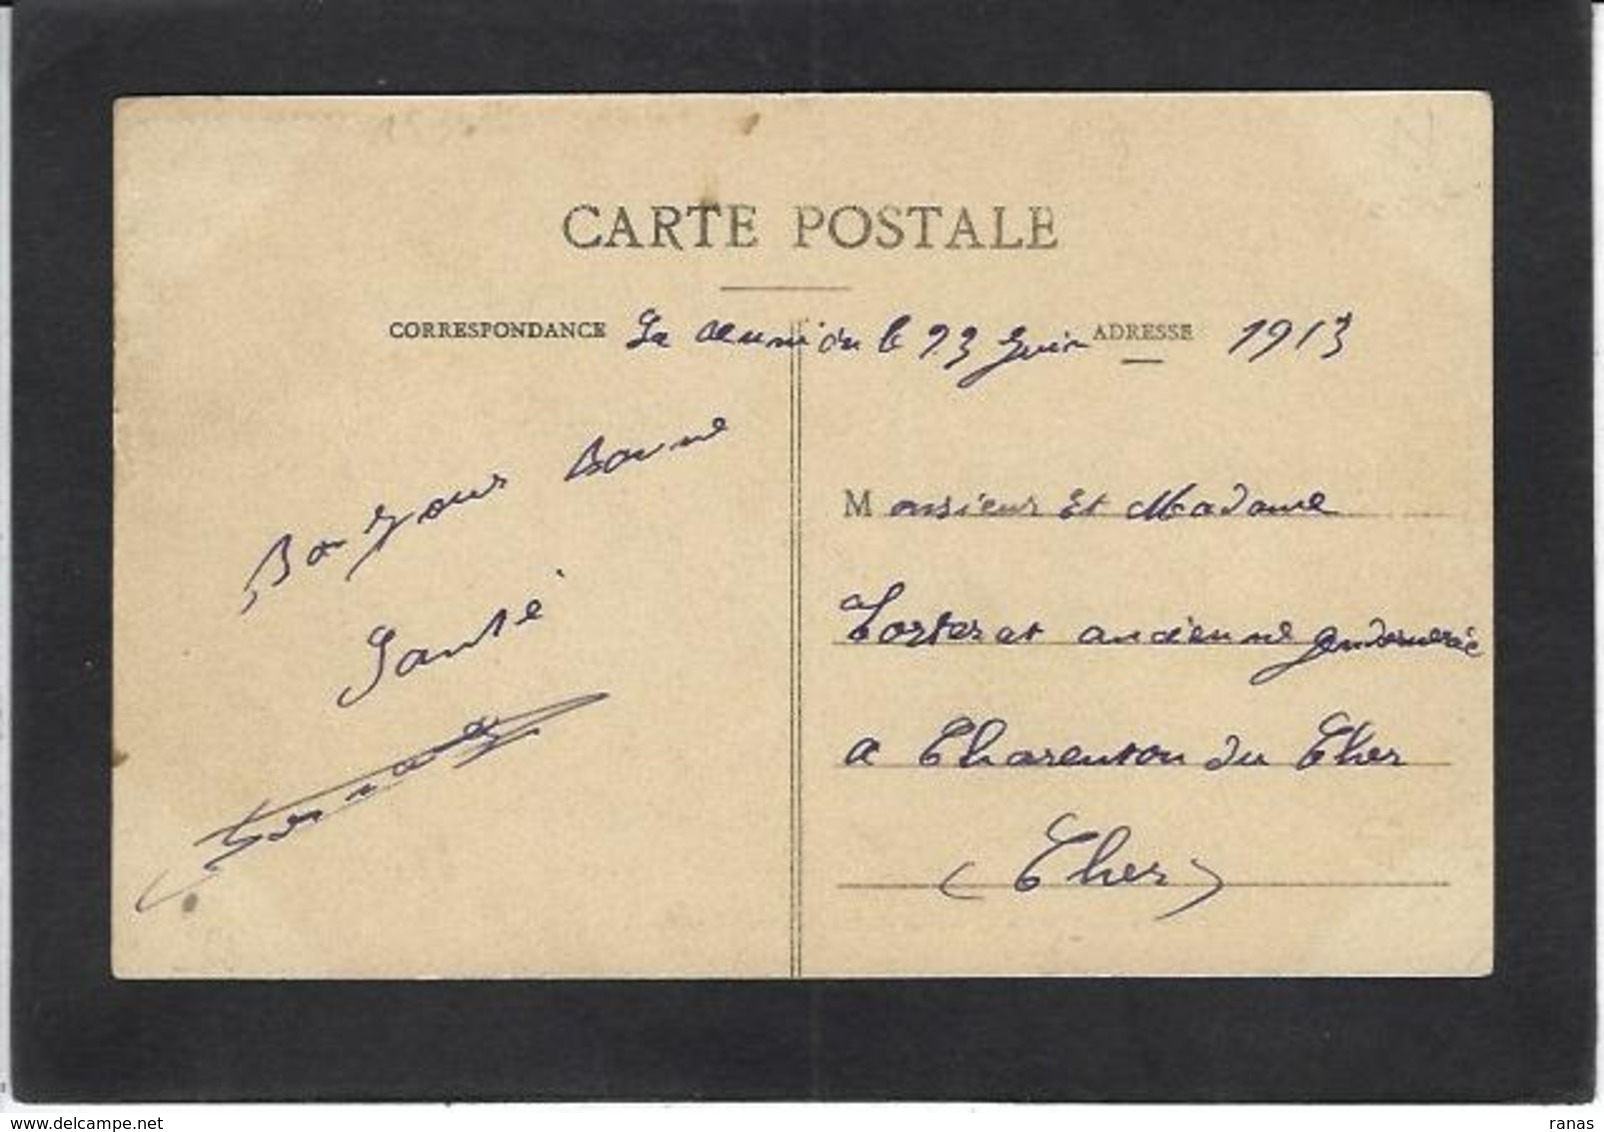 CARTE POSTALE
CORRESPONDANCE
ADRESSE
La Reunion le 23 Juin 1913
Bonjour Bonne
Santé
Monsieur Et Madame
ancienne gendarmerie
a Charenton du Cher
(Cher)
www.delcampe.net
ranas